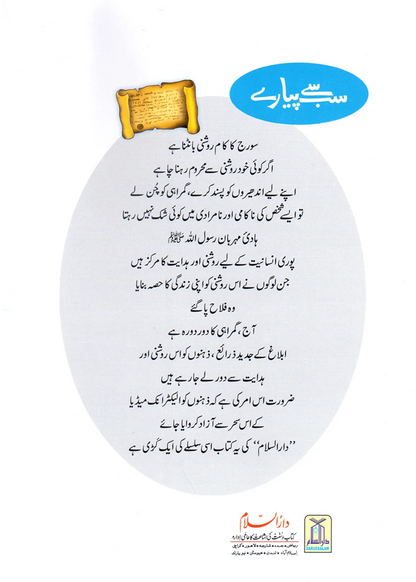 سب سے پیارے
سورج کا کام روشنی بانٹنا ہے
اگر کوئی خود روشنی سے محروم رہنا چاہے
اپنے لیے اندھیروں کو پسند کرے، گمراہی کو چُن لے
تو ایسے شخص کی ناکامی اور نامرادی میں کوئی شک نہیں رہتا
ہادیٔ مہربان رسول اللہ ﷺ
پوری انسانیت کے لیے روشنی اور ہدایت کا مرکز ہیں
جن لوگوں نے اس روشنی کو اپنی زندگی کا حصہ بنایا
وہ فلاح پا گئے
آج، گمراہی کا دور دورہ ہے
ابلاغ کے جدید ذرائع، ذہنوں کو اس روشنی اور
ہدایت سے دور لے جا رہے ہیں
ضرورت اس امر کی ہے کہ ذہنوں کو الیکٹرانک میڈیا
کے اس سحر سے آزاد کروایا جائے
”دارالسلام“ کی یہ کتاب اسی سلسلے کی ایک کڑی ہے
دارالسلام
کتاب و سنت کی اشاعت کا عالمی ادارہ
DARUSSALAM